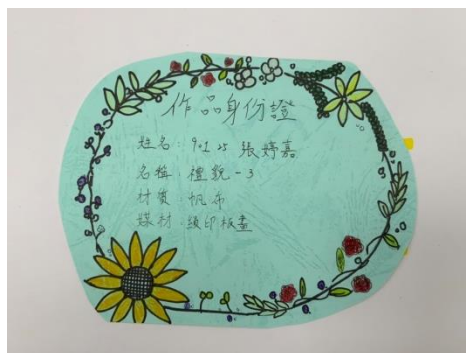 作品身份證
姓名：90125 張婷嘉
名稱：禮貌-3
材質：帆布
媒材：絹印版畫